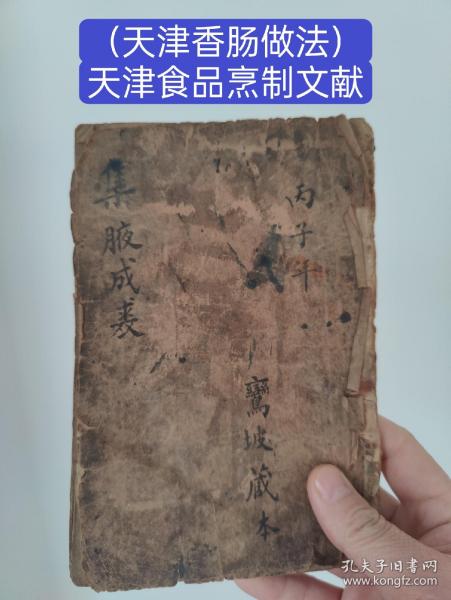 （天津香肠做法）
天津食品烹制文献
丙子年
鸞坡藏本
集腋成裘
孔夫子旧书网
www.kongfz.com